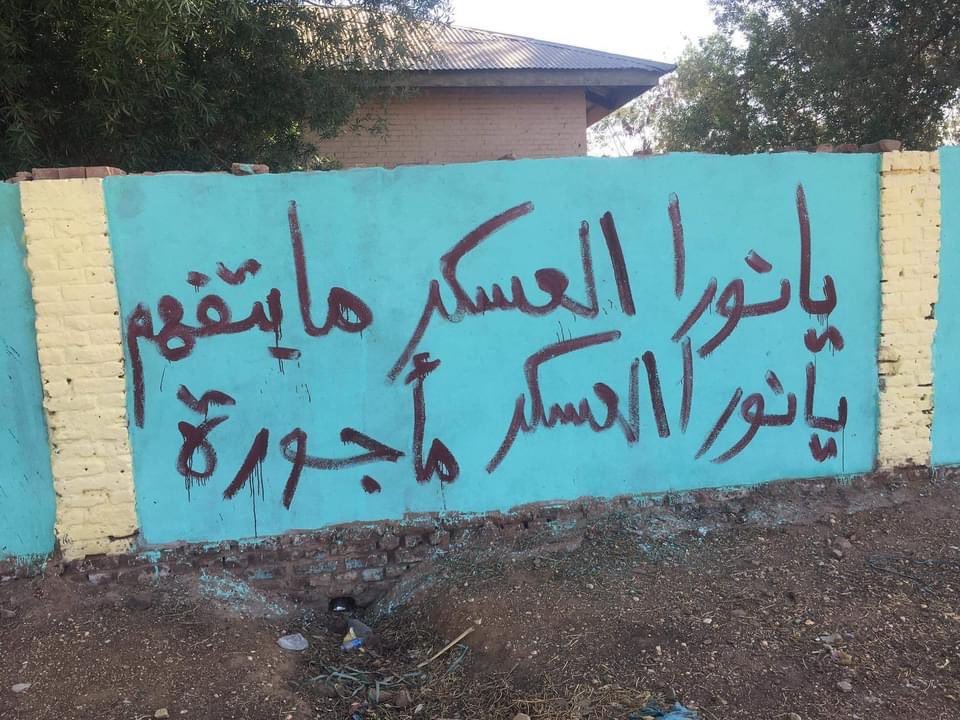 يا نورا العسكر ما يتفهم
يا نورا العسكر مأجورة